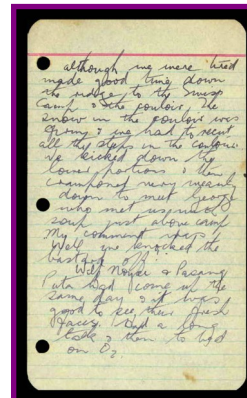 although we were tired
made good time down
the ridge to the Swiss
Camp & the couloir. The
snow in the couloir was
firm & we had to recut
all the steps in the couloir.
We kicked down the
lower portions & then
cramponed very wearily
down to meet George
who met us
soup just above camp
My comment was
Well we knocked the
bastard off!
Wilf Noyce & Pasang
Puta had come up the
same day & it was
good to see their fresh
faces. Had a long
talk & then to bed
on O2.